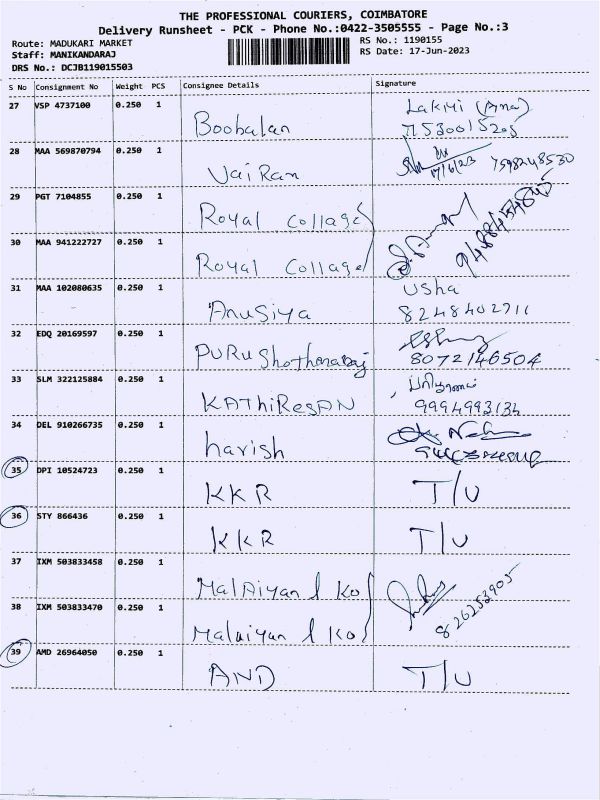 THE PROFESSIONAL COURIERS, COIMBATORE
Delivery Runsheet - PCK - Phone No.:0422-3505555 - Page No.:3
Route: MADUKARI MARKET RS No.: 1190155
Staff: MANIKANDARAJ RS Date: 17-Jun-2023
DRS No.: DCJB119015503
S No Consignment No Weight PCS Consignee Details Signature
27 VSP 4737100 0.250 1 Boobalan
28 MAA 569870794 0.250 1 Vai Ran 17/6/23 7598248530
29 PGT 7104855 0.250 1 Royal Collage
30 MAA 941222727 0.250 1 Royal Collage
31 MAA 102080635 0.250 1 Anusiya Usha
8248402911
32 EDQ 20169597 0.250 1 PURushothamaraj
8072146504
33 SLM 322125884 0.250 1 KAThiResAN
9994993134
34 DEL 910266735 0.250 1 harish
35 DPI 10524723 0.250 1 KKR T/U
36 STY 866436 0.250 1 KKR T/U
37 IXM 503833458 0.250 1 MalAiyan & Ko
38 IXM 503833470 0.250 1 Malaiyan & Ko
39 AMD 26964050 0.250 1 AND T/U